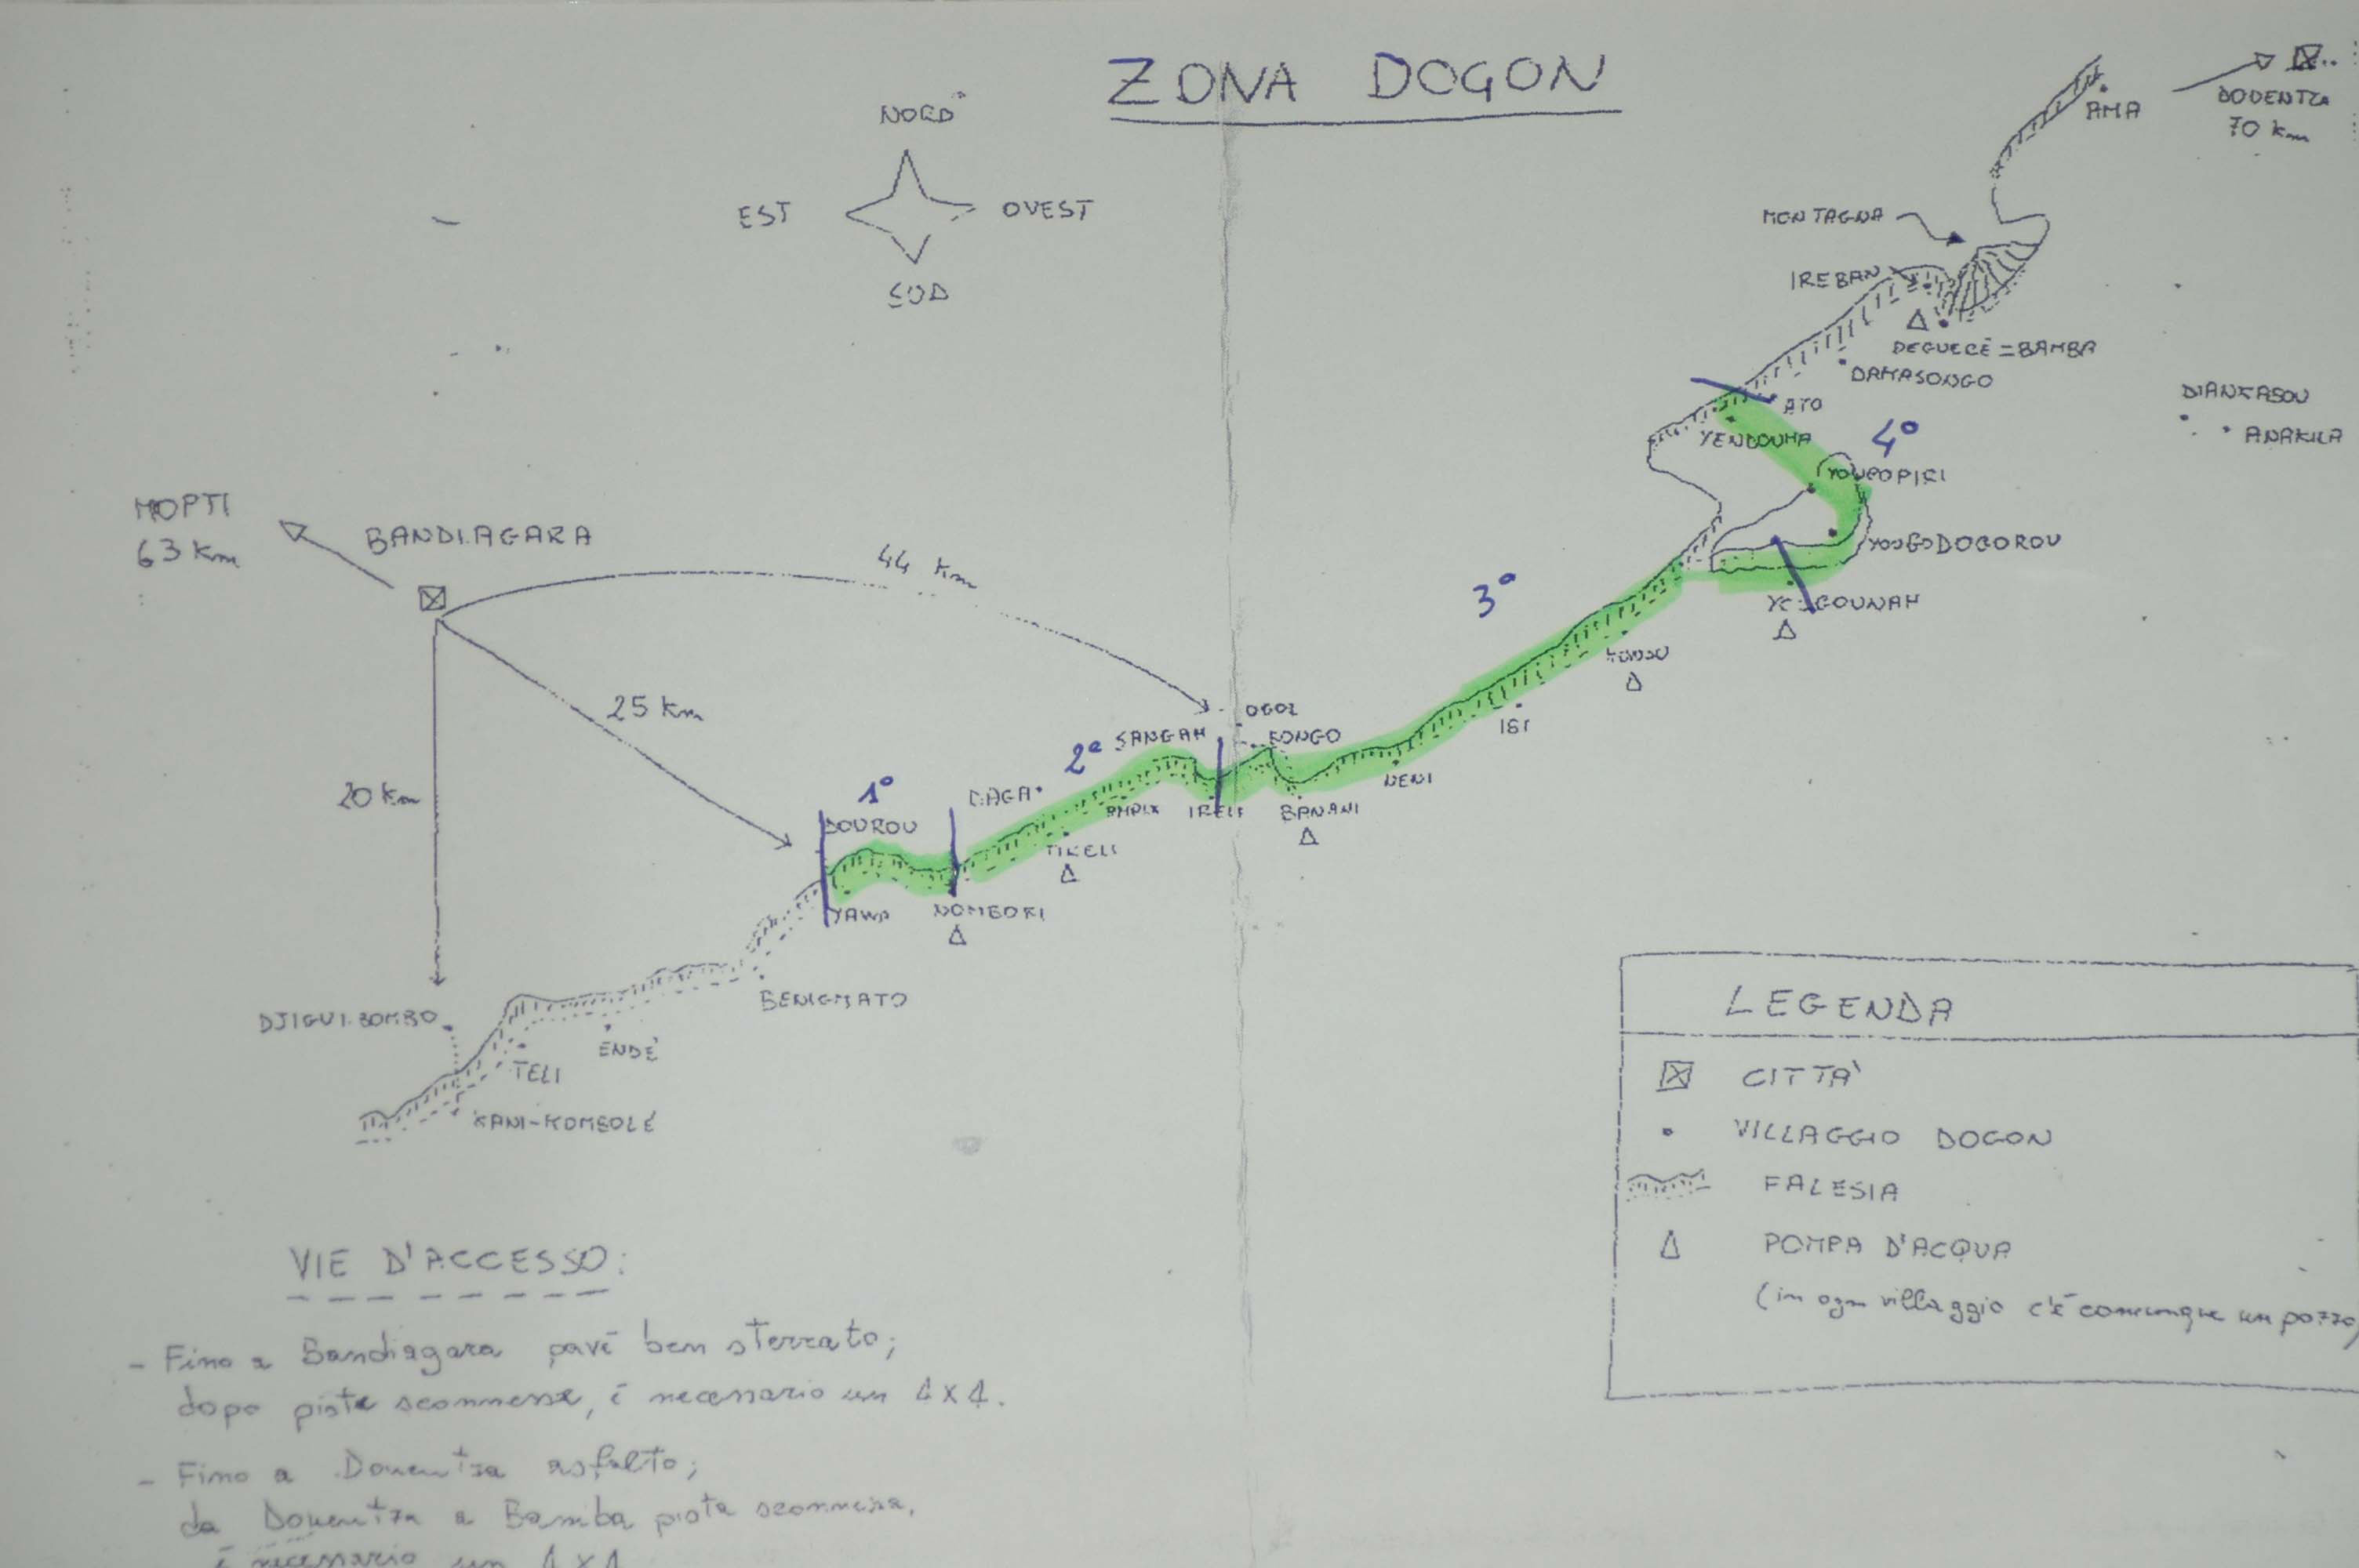 ZONA DOGON
NORD
EST
OVEST
SUD
AMA
DOUENTZA
70 km
MONTAGNA
IREBAN
DEGUECÉ = BAMBA
DAMASONGO
ATO
YENDOUMA
4°
DIANKABOU
ANAKILA
YOUGOPIRI
YOUGODOGOROU
YOUGOUNAH
MOPTI
63 km
BANDIAGARA
44 km
3°
25 km
20 km
KOUNDU
IBI
OGOL
SANGAH
BONGO
2°
NENI
DAGA
1°
AMANI
IRELI
BANANI
DOUROU
TIRELI
YAWA
NOMBORI
BENIGMATO
DJIGUIBOMBO
ENDÉ
TELI
KANI-KOMBOLÉ
LEGENDA
CITTA'
VILLAGGIO DOGON
FALESIA
POMPA D'ACQUA
(in ogni villaggio c'è comunque un pozzo)
VIE D'ACCESSO:
- Fino a Bandiagara pavé ben sterrato;
dopo piste sconnesse, è necessario un 4x4.
- Fino a Douentza asfalto;
da Douentza a Bamba pista sconnessa,
è necessario un 4x4